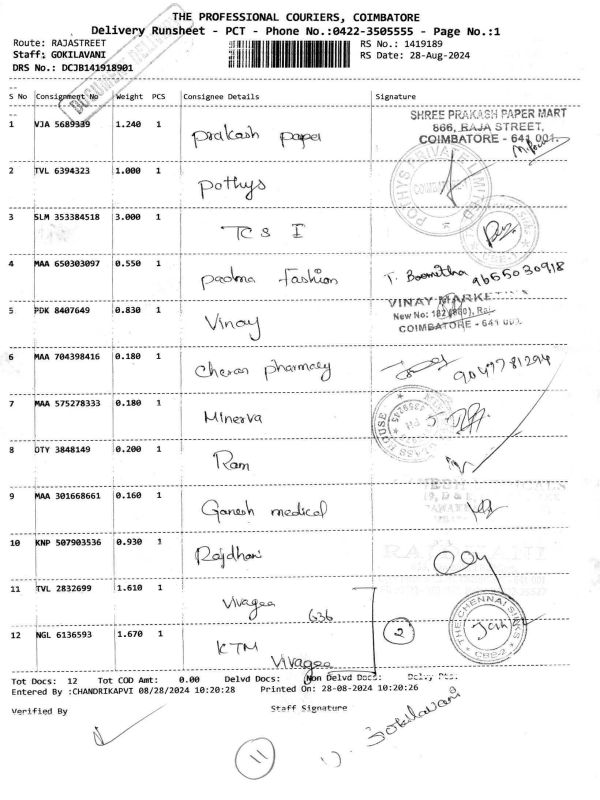 THE PROFESSIONAL COURIERS, COIMBATORE
Delivery Runsheet - PCT - Phone No.:0422-3505555 - Page No.:1
Route: RAJASTREET RS No.: 1419189
Staff: GOKILAVANI RS Date: 28-Aug-2024
DRS No.: DCJB141918901
S No Consignment No Weight PCS Consignee Details Signature
SHREE PRAKASH PAPER MART
866, RAJA STREET,
COIMBATORE - 641 001.
1 VJA 5689339 1.240 1 prakash paper
2 TVL 6394323 1.000 1 pothys
POTHYS PRIVATE LIMITED
3 SLM 353384518 3.000 1 TCS I
4 MAA 650303097 0.550 1 padma fashion T. Boomitha 9655030918
VINAY MARKE
New No: 182
COIMBATORE - 641 001.
5 PDK 8407649 0.830 1 Vinay
6 MAA 704398416 0.180 1 Cheran pharmacy 9047781294
7 MAA 575278333 0.180 1 Minerva
GLASS HOUSE
8 OTY 3848149 0.200 1 Ram
9 MAA 301668661 0.160 1 Ganesh medical
10 KNP 507903536 0.930 1 Rajdhani
11 TVL 2832699 1.610 1 Vivagaa
636
2
THE CHENNAI SILKS
CBE-2
12 NGL 6136593 1.670 1 KTM
Vivagaa
Tot Docs: 12 Tot COD Amt: 0.00 Delvd Docs: Non Delvd Docs:
Entered By :CHANDRIKAPVI 08/28/2024 10:20:28 Printed On: 28-08-2024 10:20:26
Verified By Staff Signature
11 Gokilavani